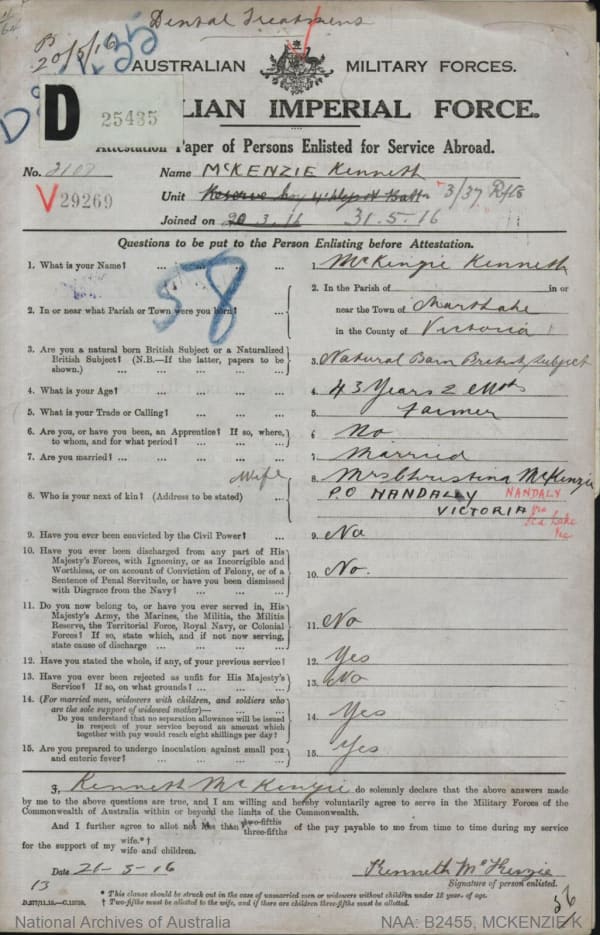 Dental Treatment
20/5/16
AUSTRALIAN MILITARY FORCES.
D 25435
LIAN IMPERIAL FORCE.
Attestation Paper of Persons Enlisted for Service Abroad.
No. 2107 Name McKENZIE Kenneth
V 29269 Unit 3/37 Rfts
Joined on 20 3.16 31.5.16
Questions to be put to the Person Enlisting before Attestation.
58
1. What is your Name? ... 1. McKenzie Kenneth
2. In or near what Parish or Town were you born? ... 2. In the Parish of in or
near the Town of
in the County of Victoria
3. Are you a natural born British Subject or a Naturalized
British Subject? (N.B.—If the latter, papers to be
shown.) ... 3. Natural Born British Subject
4. What is your Age? ... 4. 43 Years 2 Mots
5. What is your Trade or Calling? ... 5. Farmer
6. Are you, or have you been, an Apprentice? If so, where,
to whom, and for what period? ... 6 No
7. Are you married? ... 7. Married
Wife
8. Who is your next of kin? (Address to be stated) ... 8. Mrs Christina McKenzie
P.O NANDALLY NANDALY
VICTORIA via
Sea Lake
Vic
9. Have you ever been convicted by the Civil Power? ... 9. No
10. Have you ever been discharged from any part of His
Majesty's Forces, with Ignominy, or as Incorrigible and
Worthless, or on account of Conviction of Felony, or of a
Sentence of Penal Servitude, or have you been dismissed
with Disgrace from the Navy? ... 10. No.
11. Do you now belong to, or have you ever served in, His
Majesty's Army, the Marines, the Militia, the Militia
Reserve, the Territorial Force, Royal Navy, or Colonial
Forces? If so, state which, and if not now serving,
state cause of discharge ... 11. No
12. Have you stated the whole, if any, of your previous service? 12. Yes
13. Have you ever been rejected as unfit for His Majesty's
Service? If so, on what grounds? ... 13. No
14. (For married men, widowers with children, and soldiers who
are the sole support of widowed mother)—
Do you understand that no separation allowance will be issued
in respect of your service beyond an amount which
together with pay would reach eight shillings per day? 14. Yes
15. Are you prepared to undergo inoculation against small pox
and enteric fever? ... 15. Yes
I, Kenneth McKenzie do solemnly declare that the above answers made
by me to the above questions are true, and I am willing and hereby voluntarily agree to serve in the Military Forces of the
Commonwealth of Australia within or beyond the limits of the Commonwealth.
And I further agree to allot not less than two-fifths three-fifths of the pay payable to me from time to time during my service
for the support of my wife.*† wife and children.
Date 21-3-16 Kenneth McKenzie
Signature of person enlisted.
13
* This clause should be struck out in the case of unmarried men or widowers without children under 18 years of age.
† Two-fifths must be allotted to the wife, and if there are children three-fifths must be allotted.
National Archives of Australia NAA: B2455, MCKENZIE K